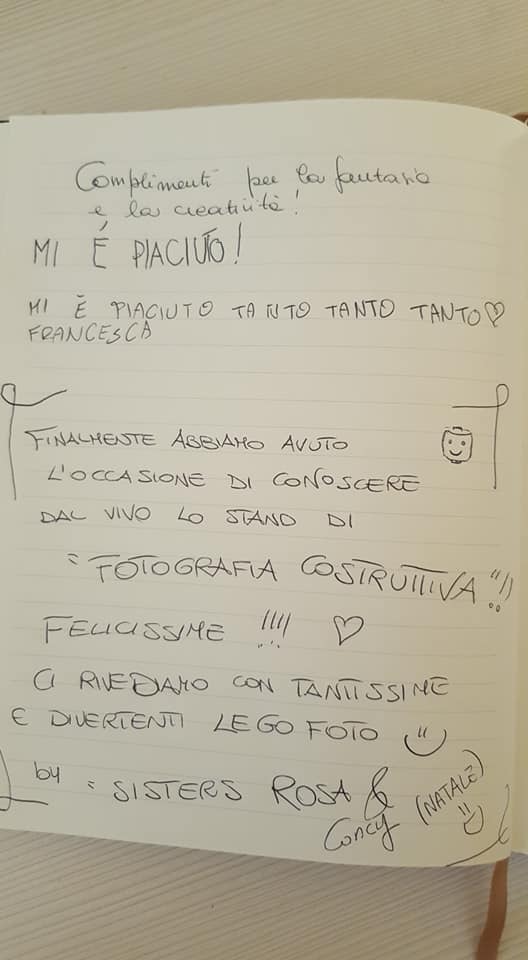 Complimenti per la fantasia
e la creatività!
MI È PIACIUTO!
MI È PIACIUTO TANTO TANTO TANTO♡
FRANCESCA
FINALMENTE ABBIAMO AVUTO
L'OCCASIONE DI CONOSCERE
DAL VIVO LO STAND DI
"FOTOGRAFIA COSTRUTTIVA"!!
FELICISSIME !!!! ♡
CI RIVEDIAMO CON TANTISSIME
E DIVERTENTI LEGO FOTO
by = SISTERS ROSA &
Concy (NATALÈ)